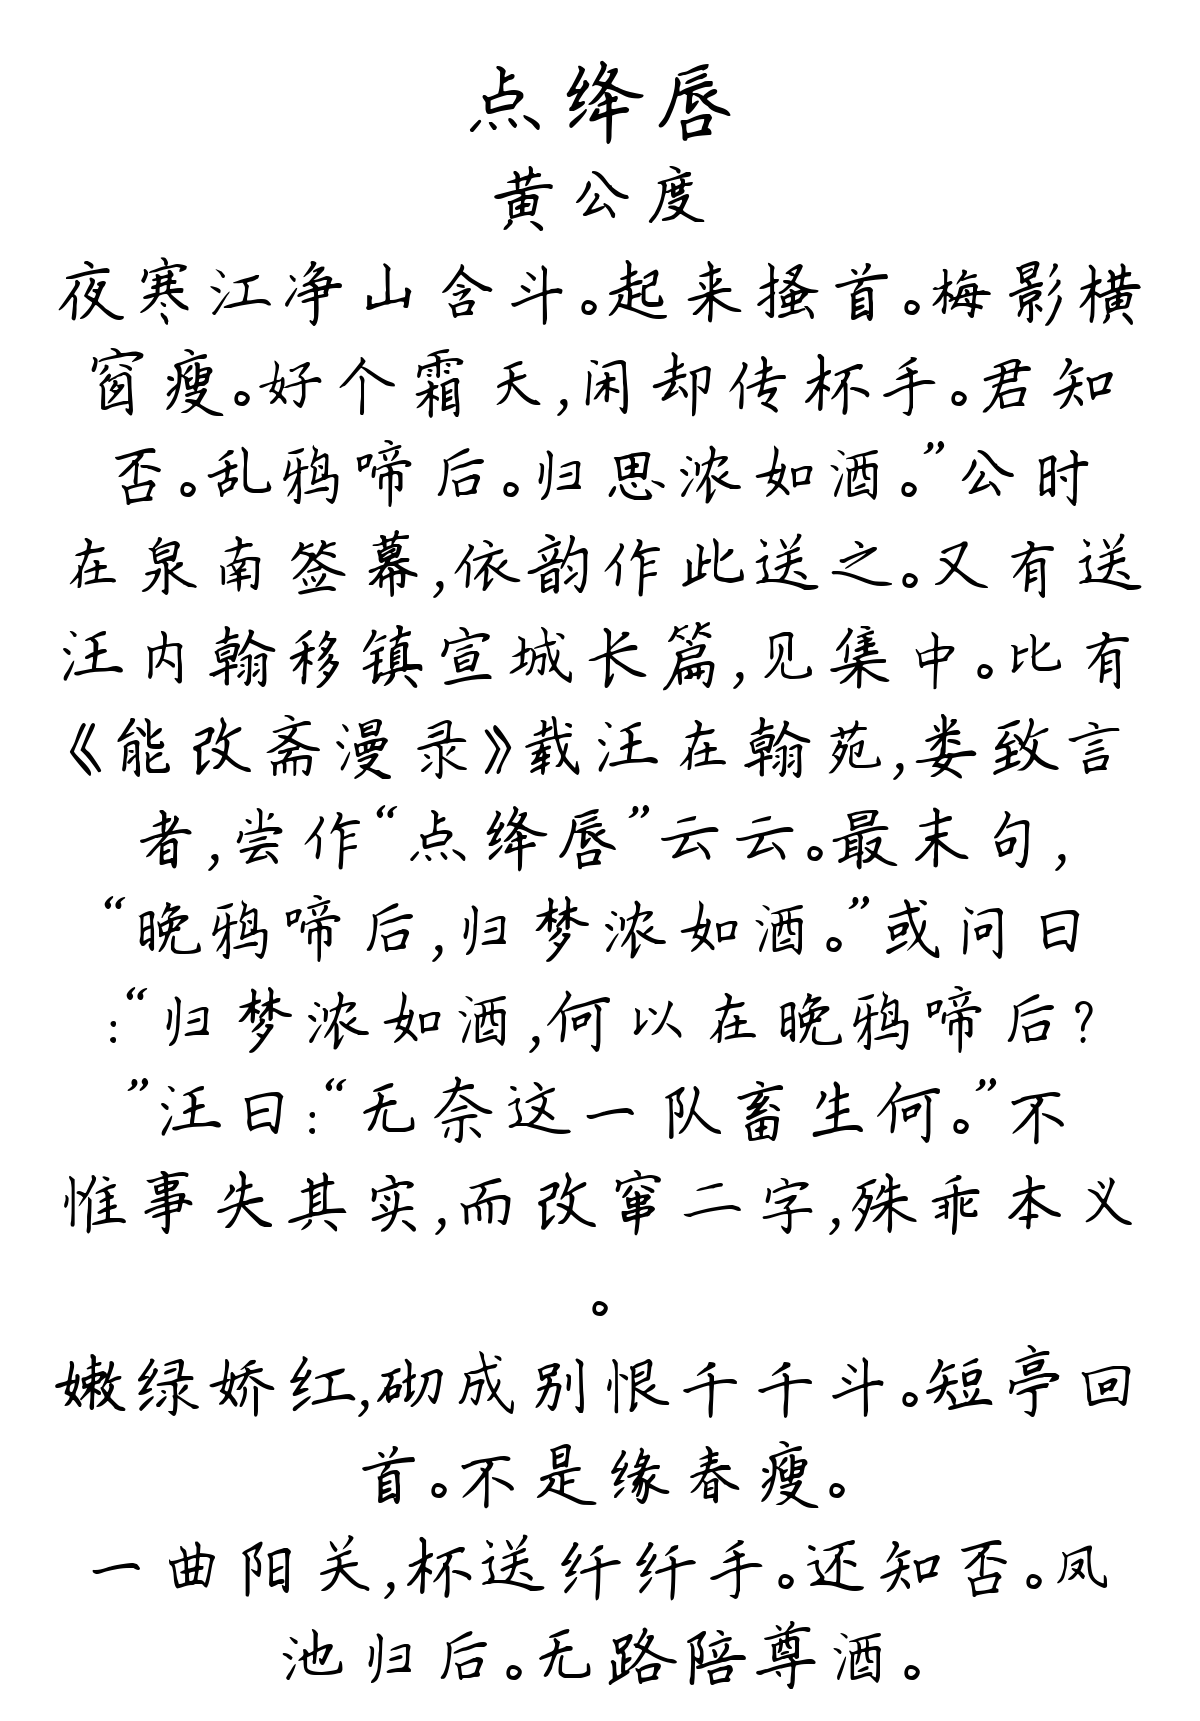 点绛唇
黄公度
夜寒江净山含斗。起来搔首。梅影横
窗瘦。好个霜天,闲却传杯手。君知
否。乱鸦啼后。归思浓如酒。”公时
在泉南签幕,依韵作此送之。又有送
汪内翰移镇宣城长篇,见集中。比有
《能改斋漫录》载汪在翰苑,娄致言
者,尝作“点绛唇”云云。最末句,
“晚鸦啼后,归梦浓如酒。”或问曰
:“归梦浓如酒,何以在晚鸦啼后?
”汪曰:“无奈这一队畜生何。”不
惟事失其实,而改窜二字,殊乖本义
。
嫩绿娇红,砌成别恨千千斗。短亭回
首。不是缘春瘦。
一曲阳关,杯送纤纤手。还知否。凤
池归后。无路陪尊酒。